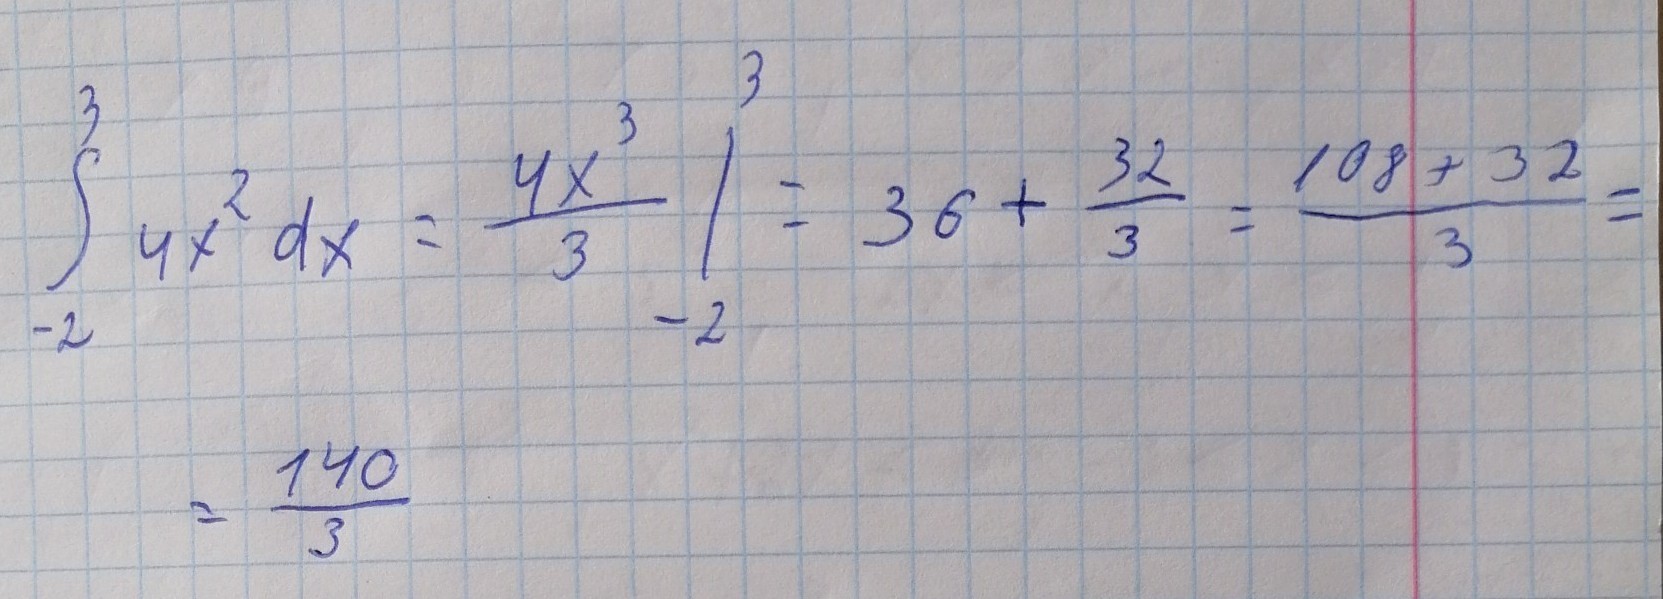 ∫₋₂³ 4x² dx = 4x³/3 |₋₂³ = 36 + 32/3 = (108 + 32)/3 =
= 140/3